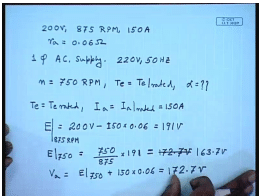 200V, 875 RPM, 150A
ra = 0.06Ω
1 φ AC. Supply. 220V, 50HZ
n = 750 RPM, Te = Te|rated, α = ??
Te = Terated, Ia = Ia|rated = 150A
E|875RPM = 200V - 150×0.06 = 191V
E|750 = 750/875 × 191 = 172.7V 163.7V
Va = E|750 + 150×0.06 = 172.7V